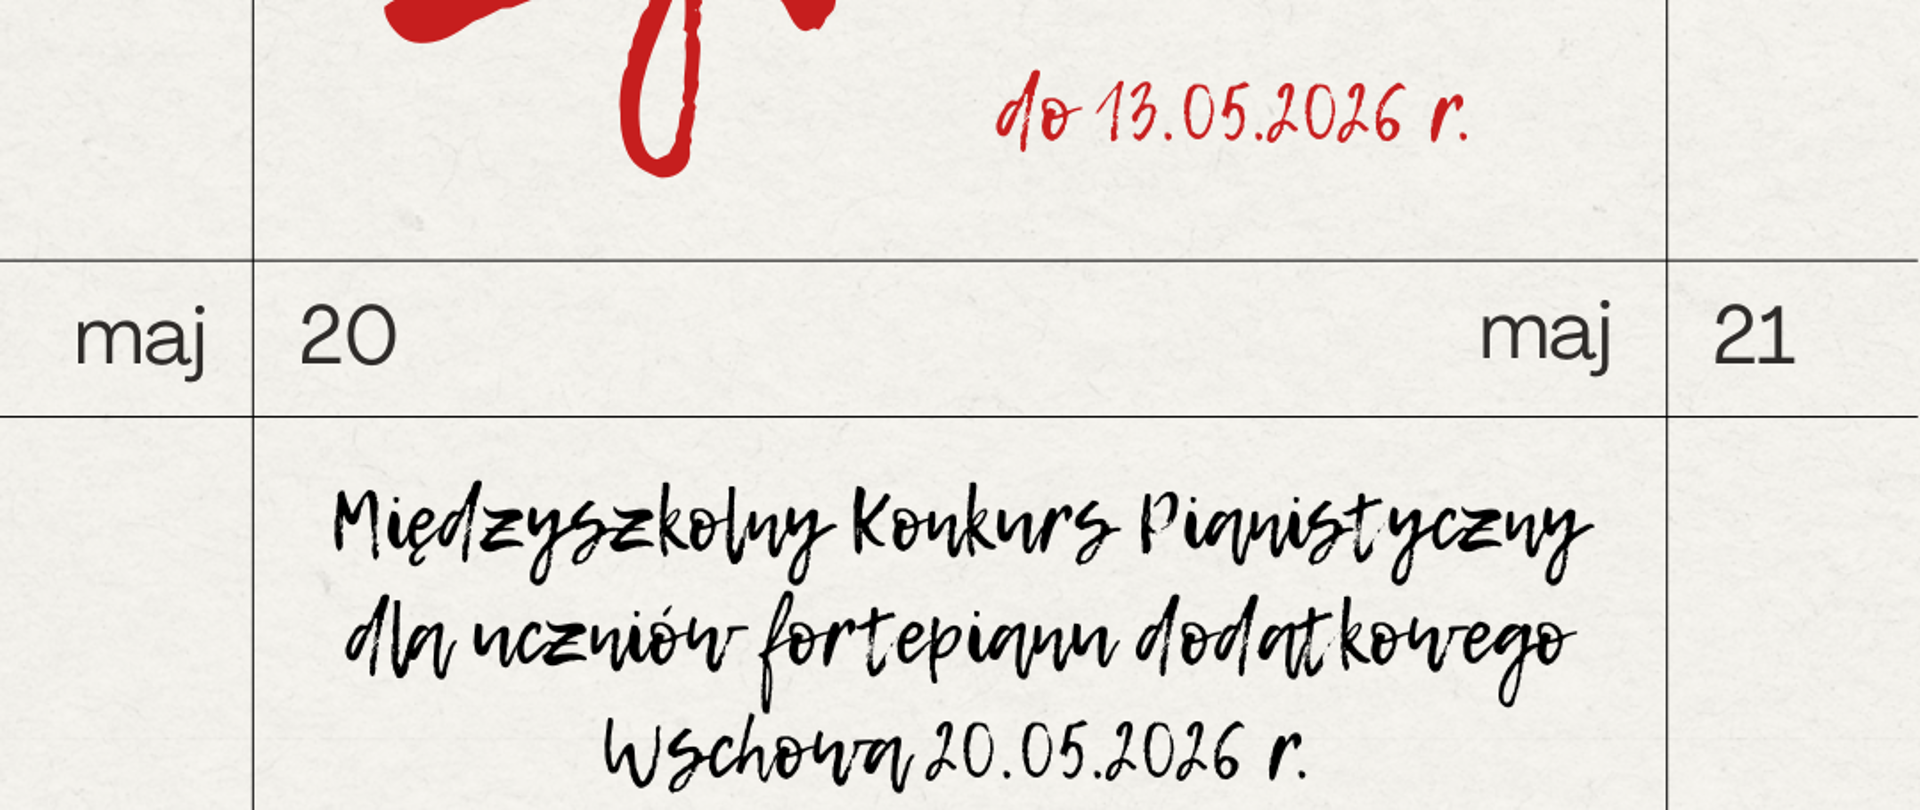 do 13.05.2026 r.
maj 20 maj 21
Międzyszkolny Konkurs Pianistyczny
dla uczniów fortepianu dodatkowego
Wschowa 20.05.2026 r.